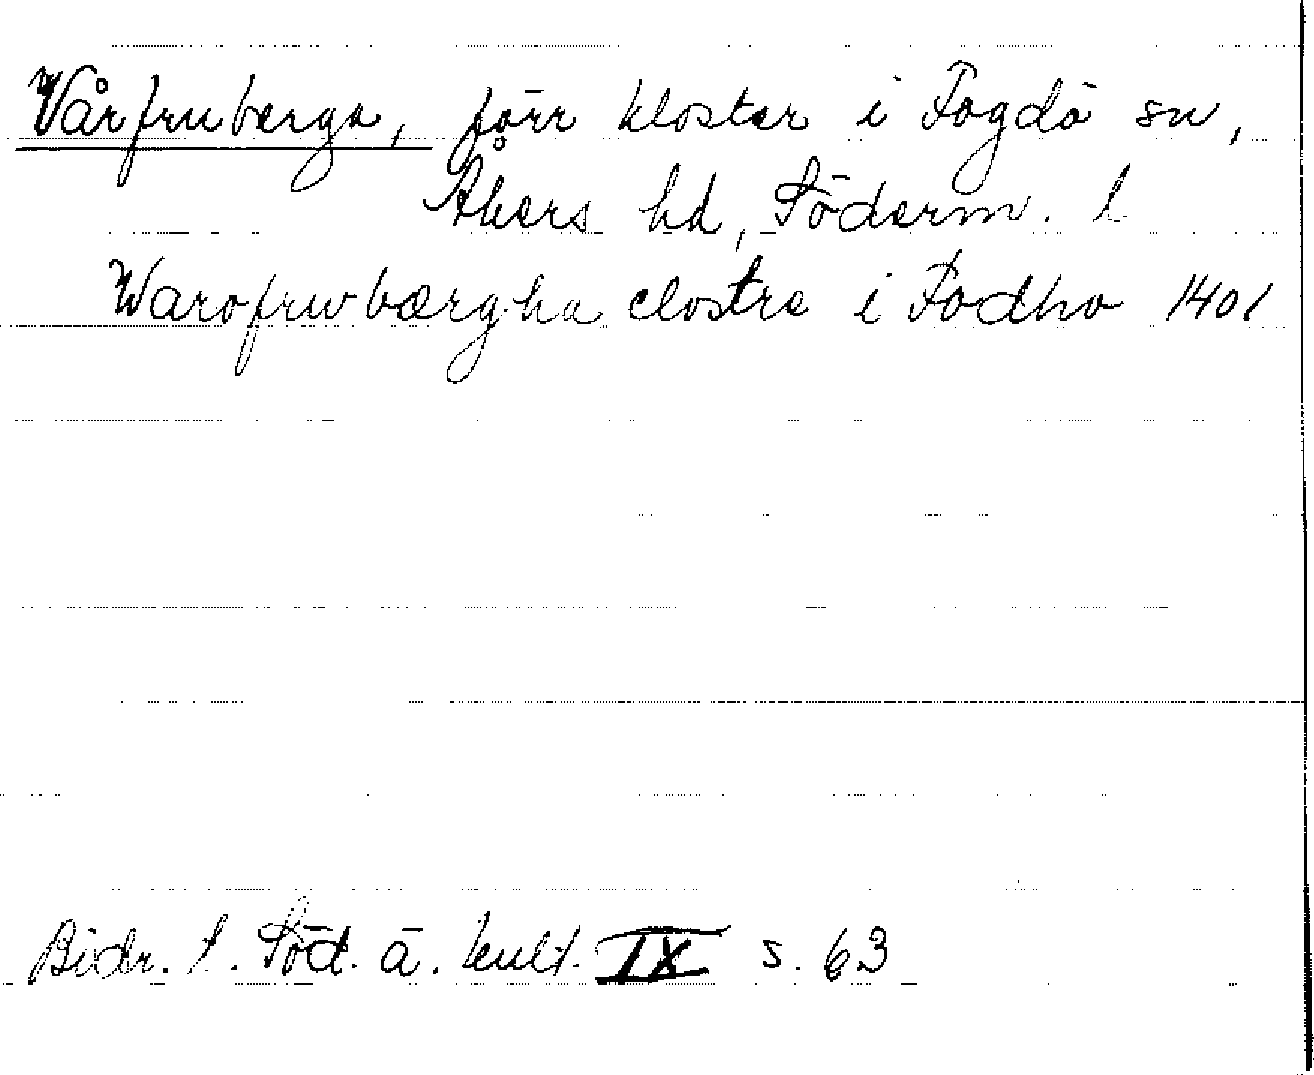 Vårfruberga, förr kloster i Fogdö sn,
Åkers hd, Söderm. l
Warofrwbærgha clostre i Fodho 1401
Bidr. t. Söd. ä. kult. IX s. 63